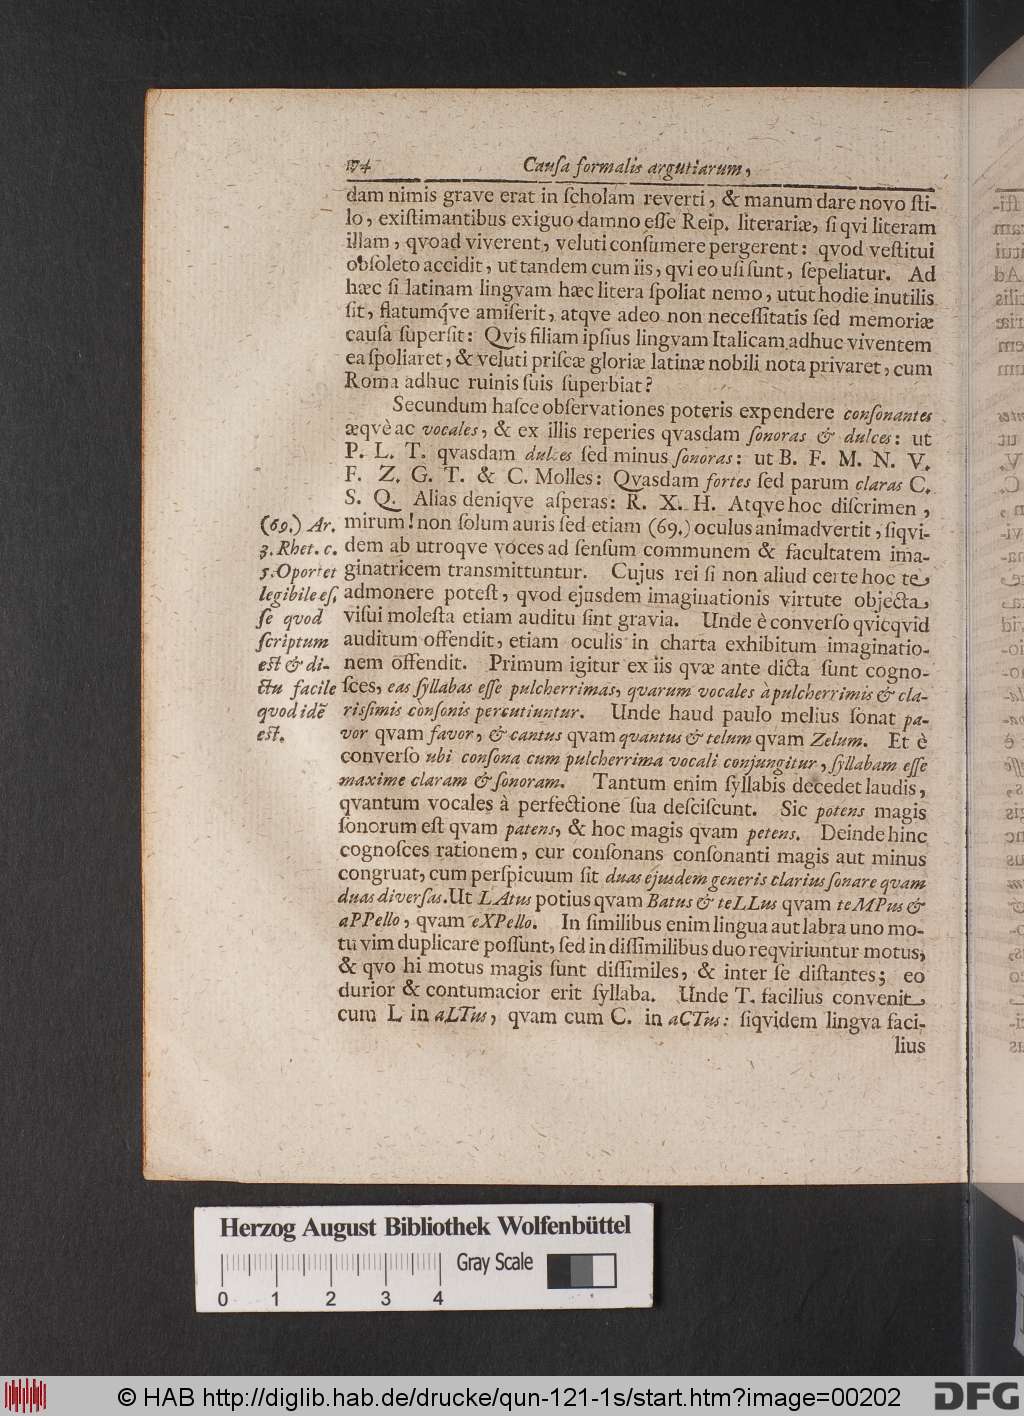 174 Cauſa formalis argutiarum,
dam nimis grave erat in ſcholam reverti, & manum dare novo ſti-
lo, exiſtimantibus exiguo damno eſſe Reip. literariæ, ſi qvi literam
illam, qvoad viverent, veluti conſumere pergerent: qvod veſtitui
obſoleto accidit, ut tandem cum iis, qvi eo uſi ſunt, ſepeliatur. Ad
hæc ſi latinam lingvam hæc litera ſpoliat nemo, utut hodie inutilis
ſit, flatumq́ve amiſerit, atqve adeo non neceſſitatis ſed memoriæ
cauſâ ſuperſit: Qvis filiam ipſius lingvam Italicam adhuc viventem
ea ſpoliaret, & veluti priſcæ gloriæ latinæ nobili nota privaret, cum
Roma adhuc ruinis ſuis ſuperbiat?
Secundum haſce obſervationes poteris expendere conſonantes
æqvè ac vocales, & ex illis reperies qvasdam ſonoras & dulces: ut
P. L. T. qvasdam dulces ſed minus ſonoras: ut B. F. M. N. V.
F. Z. G. T. & C. Molles: Qvasdam fortes ſed parum claras C.
S. Q. Alias deniqve aſperas: R. X. H. Atqve hoc diſcrimen,
mirum! non ſolum auris ſed etiam (69.) oculus animadvertit, ſiqvi-
dem ab utroqve voces ad ſenſum communem & facultatem ima-
ginatricem transmittuntur. Cujus rei ſi non aliud certe hoc te
admonere poteſt, qvod ejusdem imaginationis virtute objecta
viſui moleſta etiam auditu ſint gravia. Unde è converſo qvicqvid
auditum offendit, etiam oculis in charta exhibitum imaginatio-
nem offendit. Primum igitur ex iis qvæ ante dicta ſunt cogno-
ſces, eas ſyllabas eſſe pulcherrimas, qvarum vocales à pulcherrimis & cla-
riſſimis conſonis percutiuntur. Unde haud paulo melius ſonat pa-
vor qvam favor, & cantus qvam qvantus & telum qvam Zelum. Et è
converſo ubi conſona cum pulcherrima vocali conjungitur, ſyllabam eſſe
maxime claram & ſonoram. Tantum enim ſyllabis decedet laudis,
qvantum vocales à perfectione ſua deſciſcunt. Sic potens magis
ſonorum eſt qvam patens, & hoc magis qvam petens. Deinde hinc
cognoſces rationem, cur conſonans conſonanti magis aut minus
congruat, cum perſpicuum ſit duas ejusdem generis clarius ſonare qvam
duas diverſas. Ut LAtus potius qvam Batus & teLLus qvam teMPus &
aPPello, qvam eXPello. In ſimilibus enim lingua aut labra uno mo-
tu vim duplicare poſſunt, ſed in diſſimilibus duo reqviriuntur motus,
& qvo hi motus magis ſunt diſſimiles, & inter ſe diſtantes; eo
durior & contumacior erit ſyllaba. Unde T. facilius convenit
cum L in aLTus, qvam cum C. in aCTus: ſiqvidem lingva faci-
lius
(69.) Ar.
3. Rhet. c.
5. Oportet
legibile eſ,
ſe quod
ſcriptum
eſt & di-
ctu facile
quod idẽ
eſt.
Herzog August Bibliothek Wolfenbüttel
Gray Scale
0 1 2 3 4
© HAB http://diglib.hab.de/drucke/qun-121-1s/start.htm?image=00202
DFG